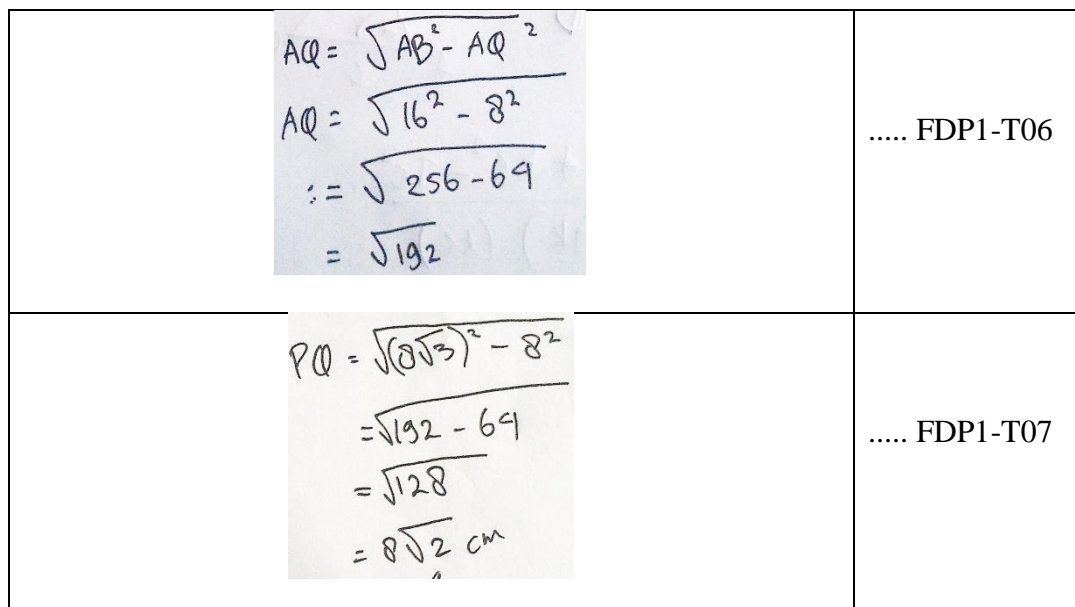 AQ = √AB² - AQ ²
AQ = √16² - 8²
:= √256 - 64
= √192
..... FDP1-T06
PQ = √(8√3)² - 8²
= √192 - 64
= √128
= 8√2 cm
..... FDP1-T07